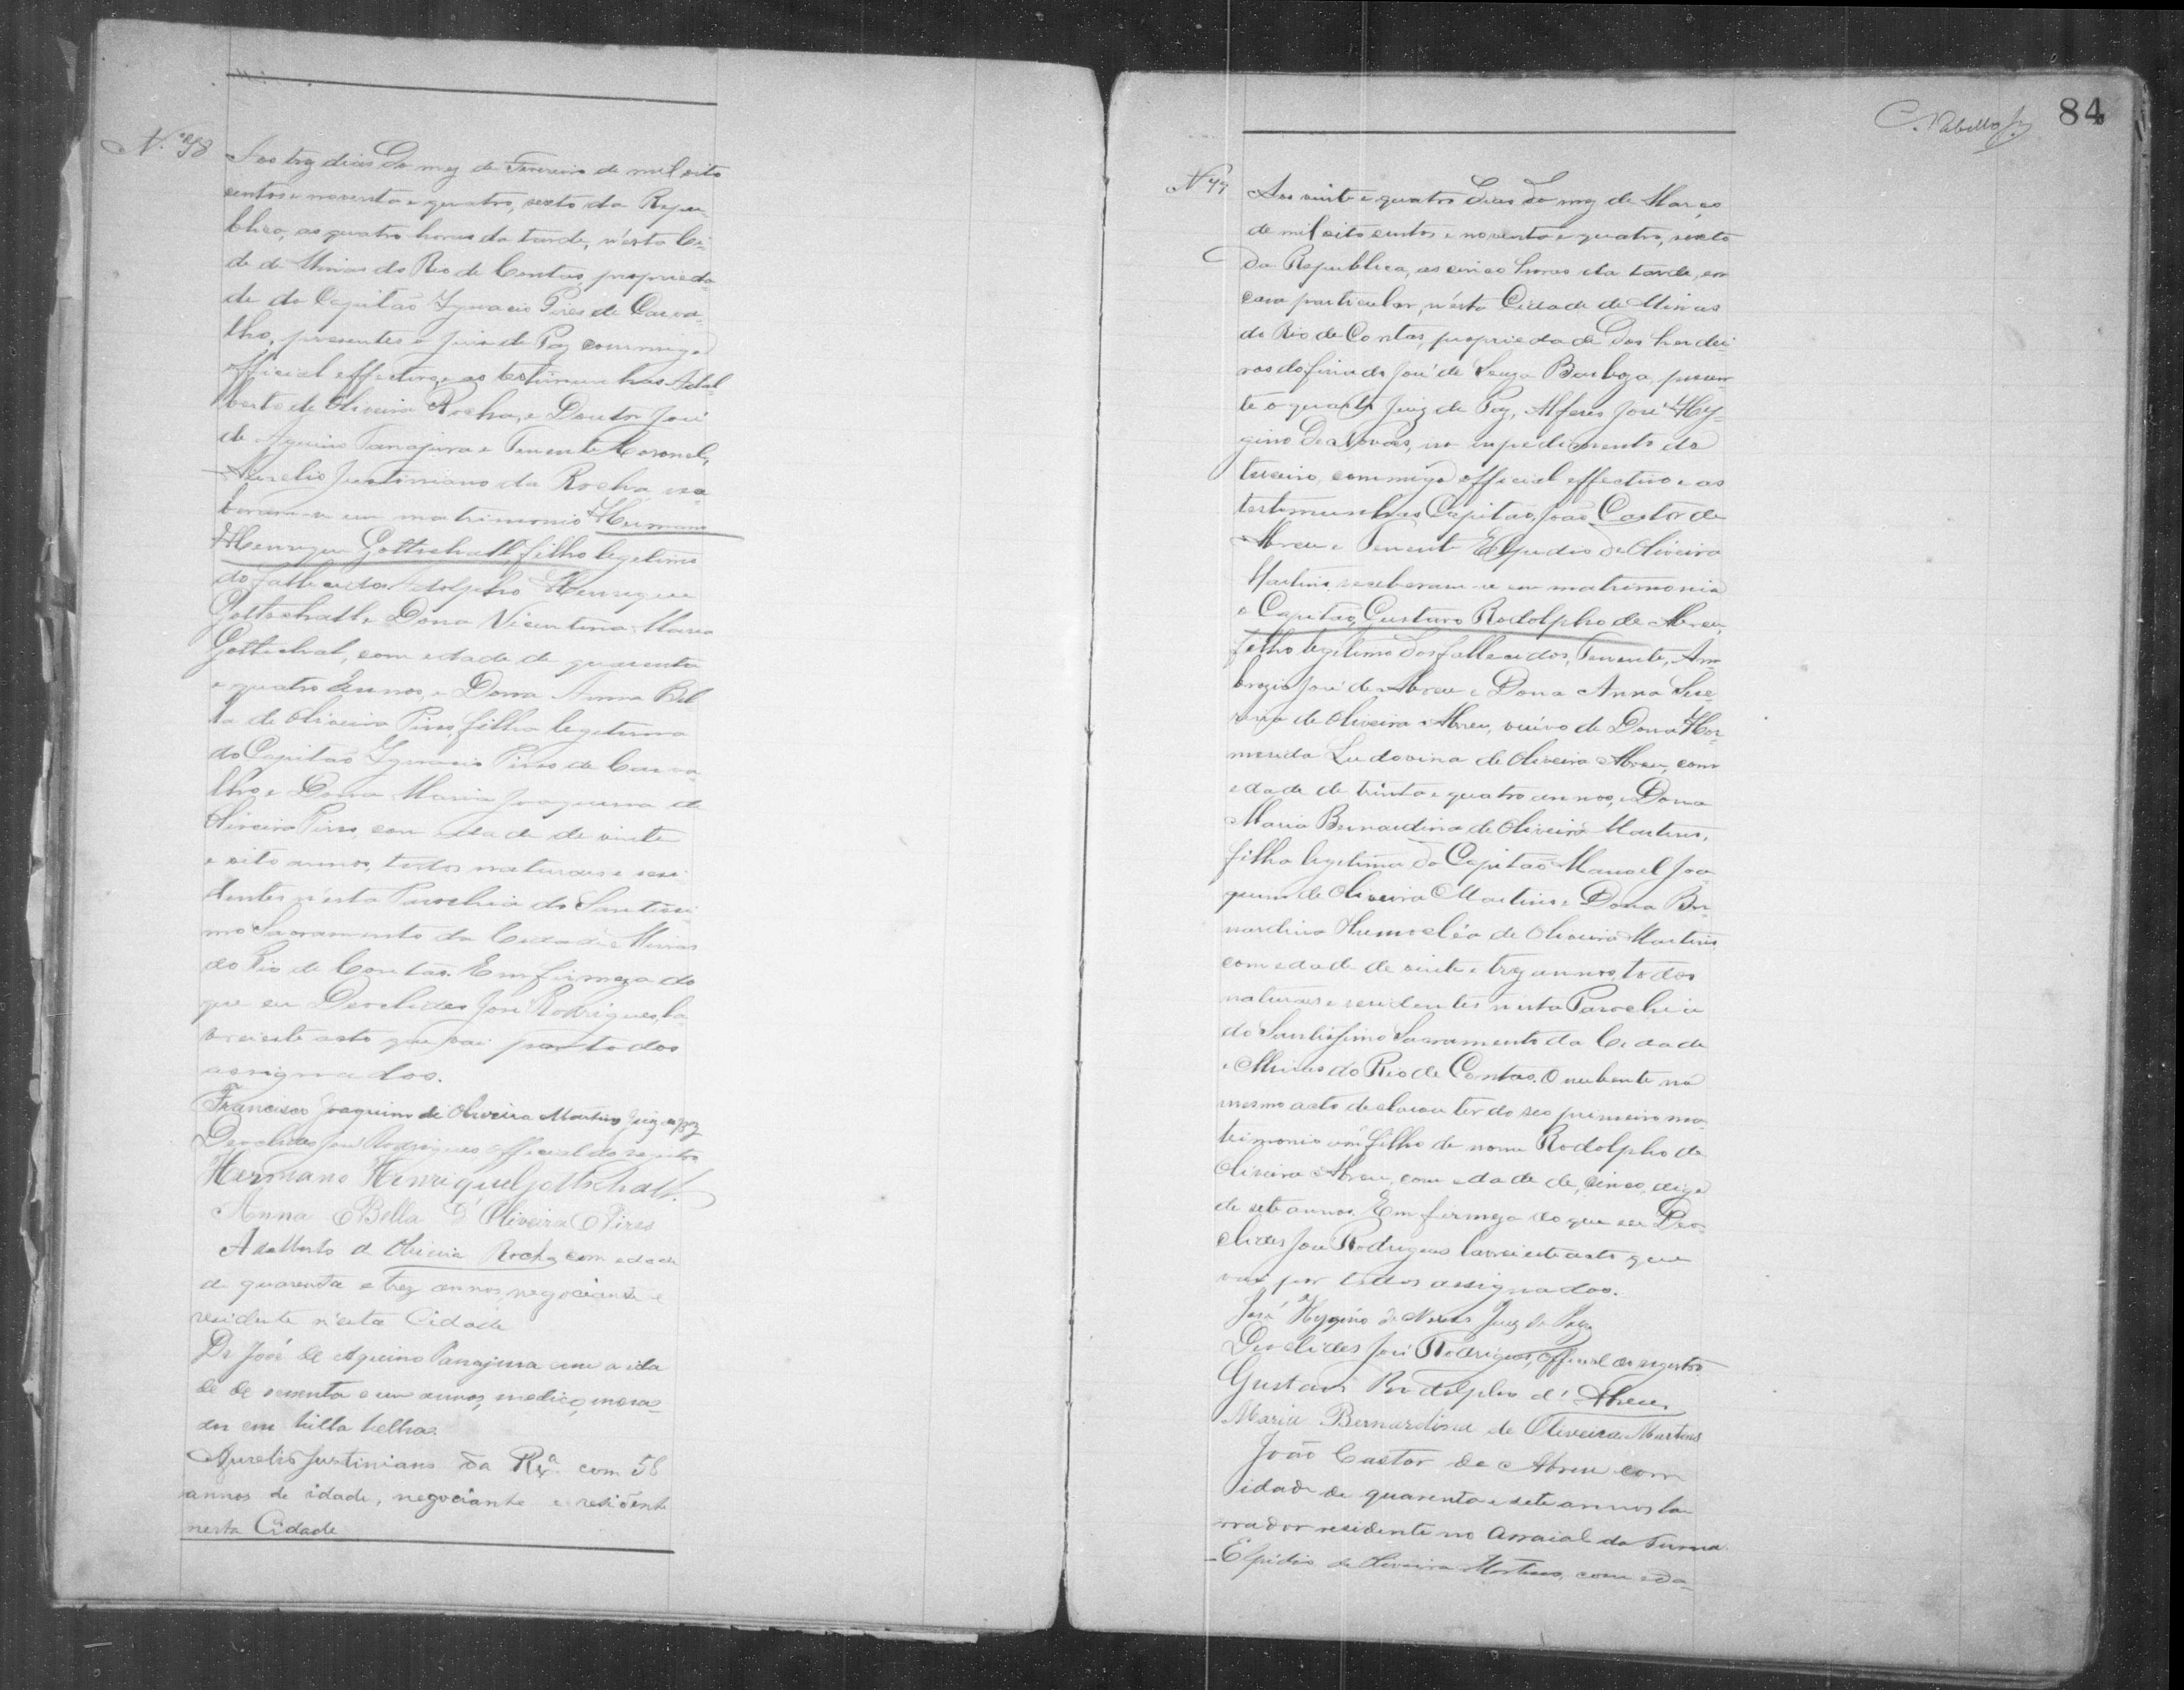 Nº 98
Aos trez dias do mez de Fevereiro de mil oito
centos e noventa e quatro, sexto da Repu-
blica, as quatro horas da tarde, n'esta Ci-
de de Minas do Rio de Contas, propried a-
de do Capitão Ignacio Pires de Carva-
lho, presentes o juis de Paz commigo
official effectivo, e as testimunhas Adal
berto de Oliveira Rocha, e Doutor José
de Aquino Tanajura e Tenente Coronel,
Aurelio Justiniano da Rocha,
em matrimonio Hermano
Henrique Gottschalk, filho legitimo
do fallecido Adolpho Henrique
Gottschalk e Dona Vicentina Maria
Gottschal, com edade de quarenta
e quatro annos, e Dona Anna Bel
la de Oliveira Pires, filha legitima
do Capitão Ignacio Pires de Carva-
lho e Dona Maria Joaquina de
Oliveira Pires, com edade de vinte
e oito annos, todos naturais e resi-
dentes n'esta Parochia do Santissi
mo Sacramento da Cidade e Minas
do Rio de Contas. Em firmeza do
que eu Deoclides José Rodrigues, la-
vrei este acto que vai por todos
assignados.
Francisco Joaquim de Oliveira Martins Juiz de paz
Deoclides José Rodrigues official do registro
Hermano Henrique Gottschalk.
Anna Bella d'Oliveira Pires
Adalberto de Oliveira Rocha com edade
de quarenta e trez annos, negociante e
residente n'esta Cidade
Dr José de Aquino Tanajura com a ida
de de sessenta e um annos, medico, mora-
dor em Villa Velha.
Aurelio Justiniano da Rxª com 58
annos de idade, negociante e residente
nesta Cidade
C. Rabello Jr
84
Nº 99
Aos vinte e quatro dias do mez de Março
de mil oito centos e noventa e quatro, sexto
da Republica, as cinco horas da tarde, em
casa particular, n'esta Cidade de Minas
do Rio de Contas, propriedade dos herdei-
ros do finado José de Souza Barboza, presen-
te o quarto Juiz de Paz, Alferes José Hy-
gino de Novaes, no impedimento do
terceiro, commigo official effectivo e as
testimunhas Capitão João Castor de
Abreu e Tenente Elpidio de Oliveira
Martins, receberam-se em matrimonio
o Capitão Gustavo Rodolpho de Abreu,
filho legitimo dos fallecidos, Tenente, Am-
brozio José de Abreu e Dona Anna
de Oliveira Abreu, viuvo de Dona Hor-
mesida Ludovina de Oliveira Abreu, com
edade de trinta e quatro annos, e Dona
Maria Bernardina de Oliveira Martins,
filha legitima do Capitão Manoel Joa-
quim de Oliveira Martins e Dona Ber-
nardina de Oliveira Martins
com edade de vinte e trez annos, todos
naturais e residentes n'esta Parochia
do Santissimo Sacramento da Cidade
e Minas do Rio de Contas. O nubente no
mesmo acto declarou ter do seo primeiro ma-
trimonio um filho de nome Rodolpho de
Oliveira Abreu, com edade de, cinco, digo
de sete annos. Em firmeza do que eu Deo-
clides José Rodrigues lavrei este acto que
vai por todos assignados.
José Hygino de Novaes Juiz de Paz
Deoclides José Rodrigues, official do registro
Gustavo Rodolpho d'Abreu
Maria Bernardina de Oliveira Martins
João Castor de Abreu com
idade de quarenta e sete annos la-
vrador residente no Arraial da Furna.
Elpidio de Oliveira Martins, com eda-